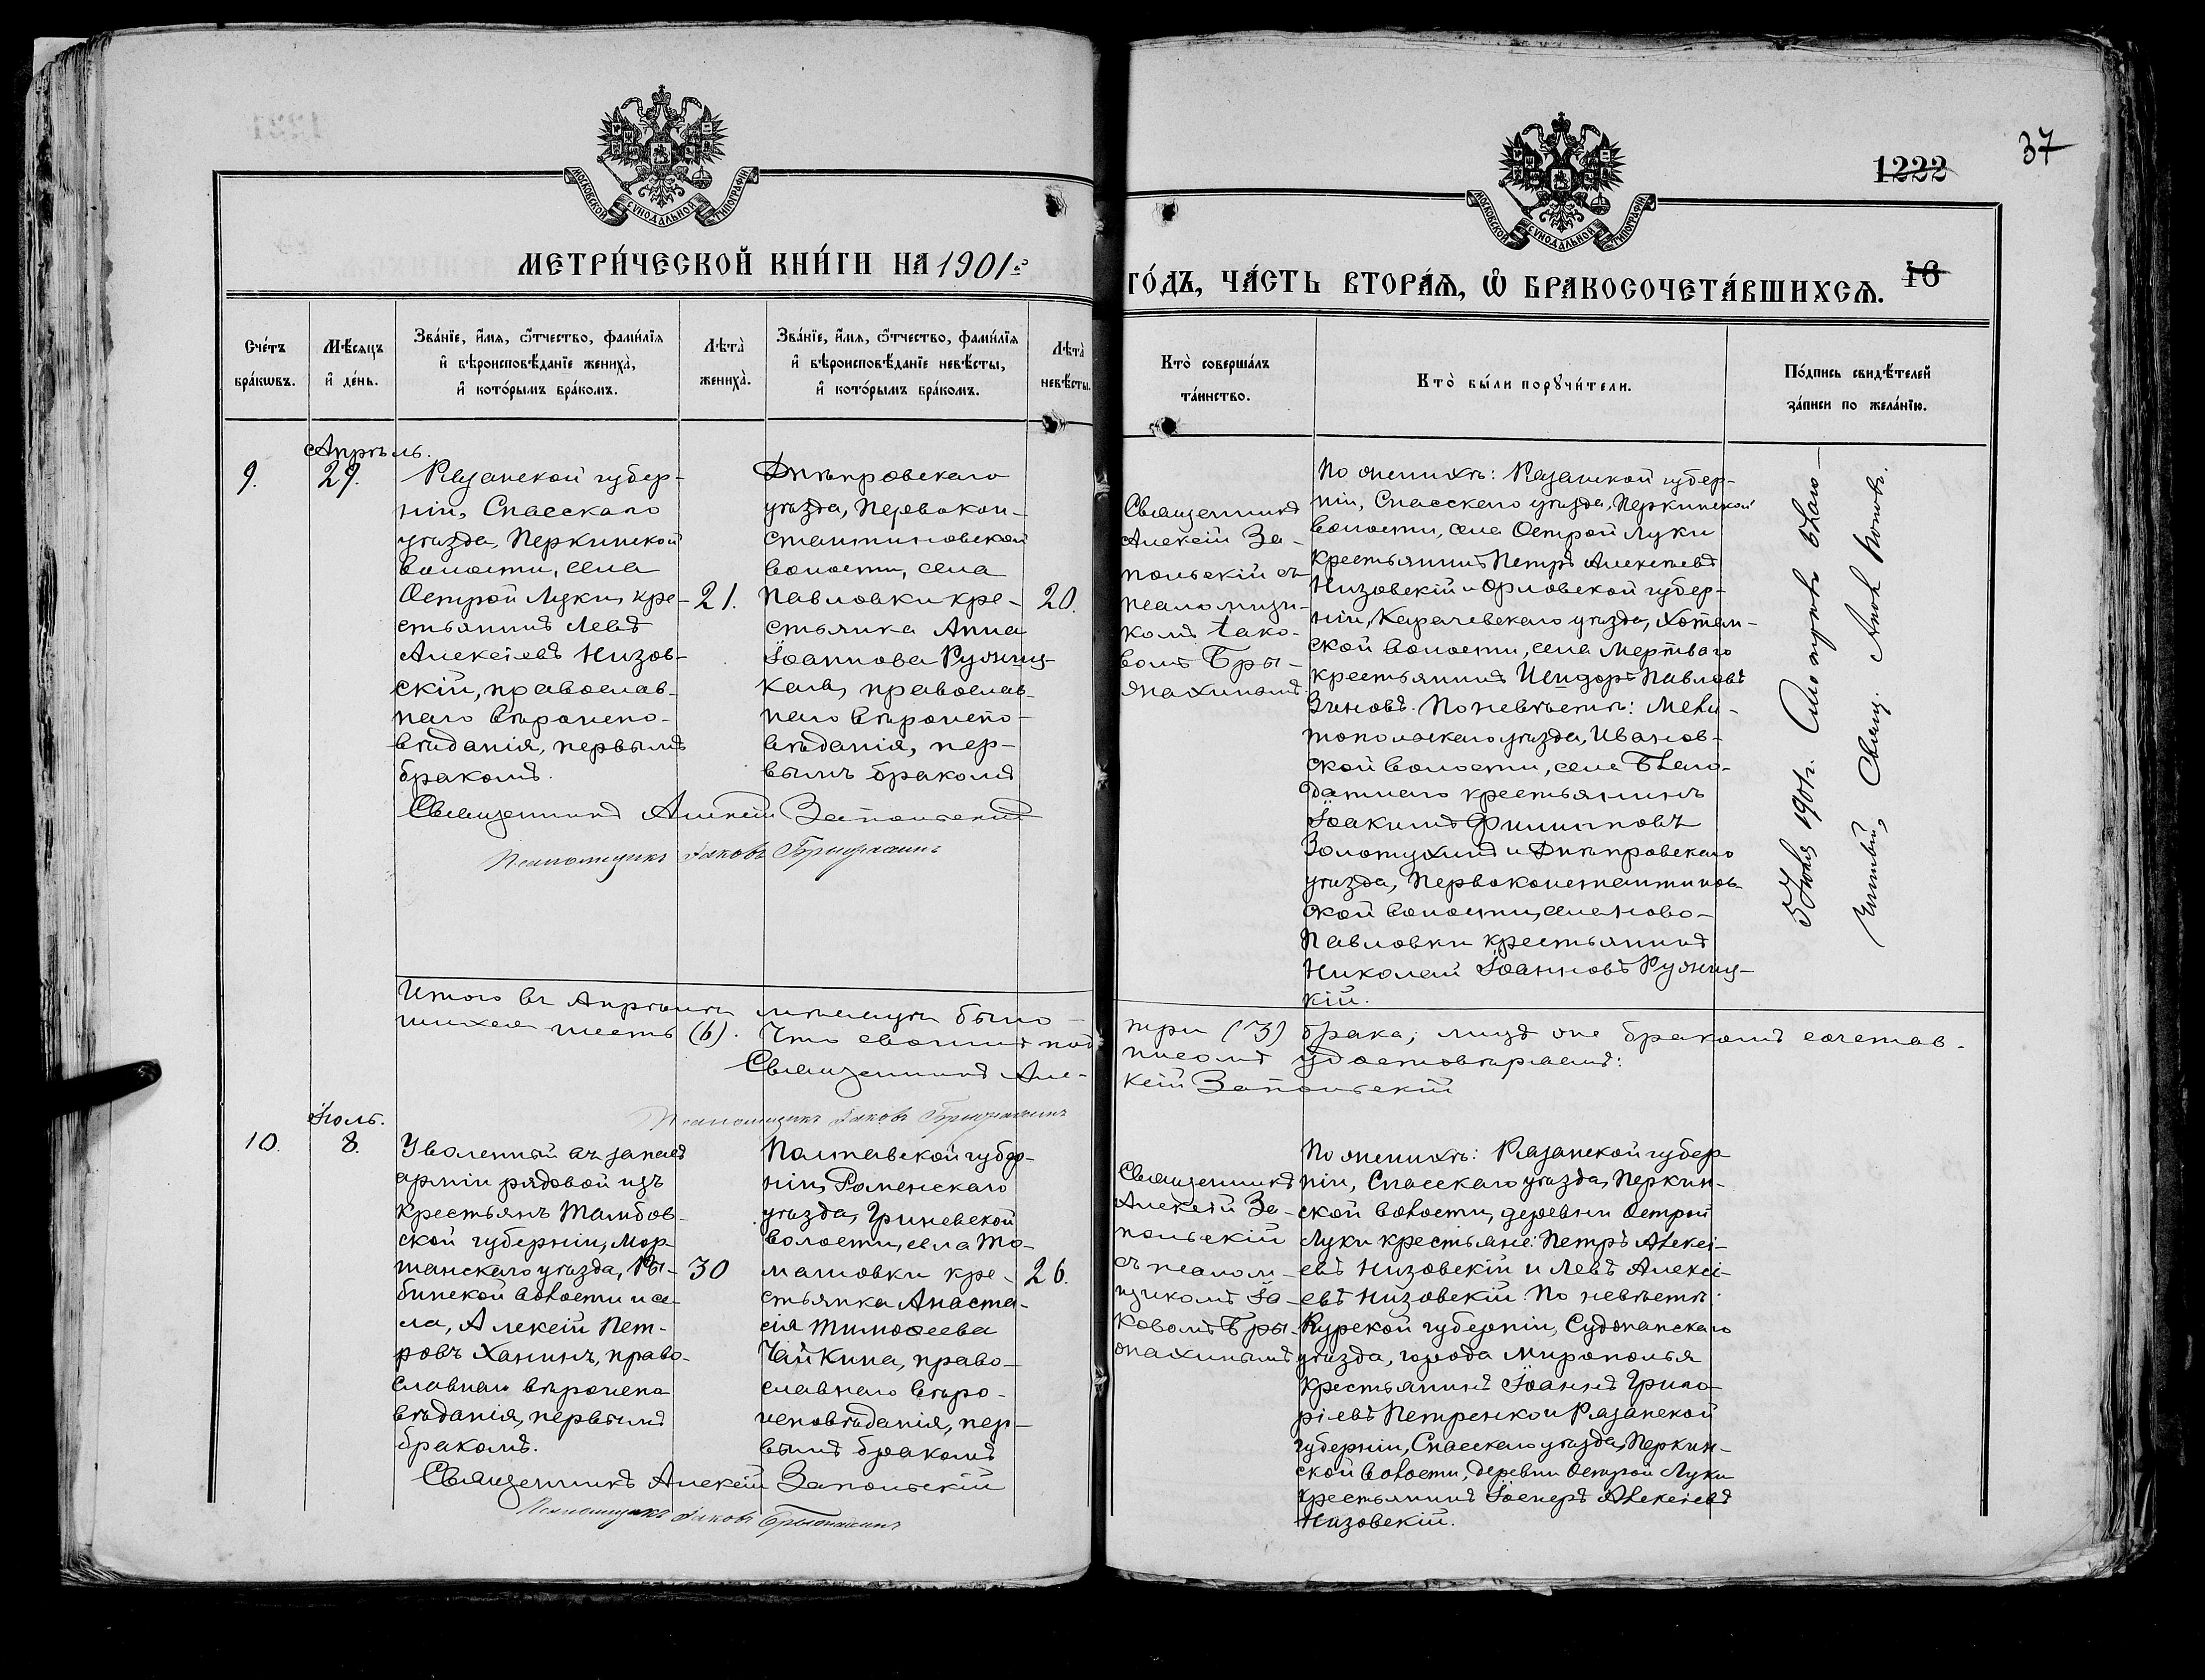 37
1222
МОСКОВСКОЙ СѴНОДАЛЬНОЙ ТИПОГРАФІИ
МОСКОВСКОЙ СѴНОДАЛЬНОЙ ТИПОГРАФІИ
МЕТРИ́ЧЕСКОЙ КНИ́ГИ НА 1901й
ГО́ДЪ, ЧА́СТЬ ВТОРА́Ѧ, Ѡ҆ БРАКОСОЧЕТА́ВШИХСѦ. 16
Сче́тъ
бра́кѡвъ.
Мѣ́сяцъ
и҆ де́нь.
Зва́нїе, и҆́мя, ѻ҆́тчество, фами́лїя
и҆ вѣроисповѣ́данїе жениха̀,
и҆ кото́рымъ бра́комъ.
Лѣта̀
жениха̀.
Зва́нїе, и҆́мя, ѻ҆́тчество, фами́лїя
и҆ вѣроисповѣ́данїе невѣ́сты,
и҆ кото́рымъ бра́комъ.
Лѣта̀
невѣ́сты.
Кто̀ соверша́лъ
та́инство.
Кто̀ бы́ли порꙋчи́тели.
По́дпись свидѣ́телей
за́писи по жела́нїю.
9.
Апрѣль.
29.
Рязанской губер-
ніи, Спасскаго
уѣзда, Перкинской
волости, села
Острой Луки, кре-
стьянинъ Левъ
Алексіевъ Низов-
скій, православ-
наго вѣроиспо-
вѣданія, первымъ
бракомъ.
21.
Днѣпровскаго
уѣзда, Первокон-
стантиновской
волости, села
Павловки кре-
стьянка Анна
Іоаннова Рузниц-
кая, православ-
наго вѣроиспо-
вѣданія, пер-
вымъ бракомъ
20.
Священникъ Алексій Запольскій
Псаломщикъ Іаковъ Брыжахинъ
Священникъ
Алексій За-
польскій съ
псаломщи-
комъ Іако-
вомъ Бры-
жахинымъ.
По женихѣ: Рязанской губер-
ніи, Спасскаго уѣзда, Перкинской
волости, села Острой Луки
крестьянинъ Петръ Алексіевъ
Низовскій и Орловской губер-
ніи, Карачевскаго уѣзда, Хотын-
ской волости, села Мертваго
крестьянинъ Исидоръ Павловъ
Зиновъ. По невѣстѣ: Мели-
топольскаго уѣзда, Иванов-
ской волости, села Благо-
датнаго крестьянинъ
Іоакимъ Филипповъ
Золотухинъ и Днѣпровскаго
уѣзда, Первоконстантинов-
ской волости, села Ново-
Павловки крестьянинъ
Николай Іоанновъ Рузниц-
кій.
5 Іюля 1901 г. Смотрѣлъ Благо-
чинный, Свящ.
Итого въ Апрѣлѣ мѣсяцѣ было
три (3) брака; лицъ оне бракомъ сочетав-
шихся шесть (6). Что своимъ под
писомъ удостовѣряемъ:
Священникъ Але-
ксій Запольскій
Псаломщикъ Іаковъ Брыжахинъ
10.
Іюль.
8.
Уволенный въ запасъ
арміи рядовой изъ
крестьянъ Тамбов-
ской губерніи, Мор-
шанскаго уѣзда, Ры-
бинской волости и се-
ла, Алексій Пет-
ровъ Ханинъ, право-
славнаго вѣроиспо
вѣданія, первымъ
бракомъ.
30
Полтавской губер-
ніи, Роменскаго
уѣзда, Гриневской
волости, села То-
машовки кре-
стьянка Анаста-
сія Тимоѳеева
Чайкина, право-
славнаго вѣро-
исповѣданія, пер-
вымъ бракомъ
26.
Священникъ Алексій Запольскій
Псаломщикъ Іаковъ Брыжахинъ
Священникъ
Алексій За-
польскій
съ псалом-
щикомъ Іа-
ковомъ Бры-
жахинымъ
По женихѣ: Рязанской губер
ніи, Спасскаго уѣзда, Перкин-
ской волости, деревни Острой
Луки крестьяне: Петръ Алексі-
евъ Низовскій и Левъ Алексі-
евъ Низовскій. По невѣстѣ:
Курской губерніи, Суджанскаго
уѣзда, города Мирополья
крестьянинъ Іоаннъ Григо-
ріевъ Петренко и Рязанской
губерніи, Спасскаго уѣзда, Перкин-
ской волости, деревни Острой Луки
крестьянинъ Алексіевъ
Низовскій.